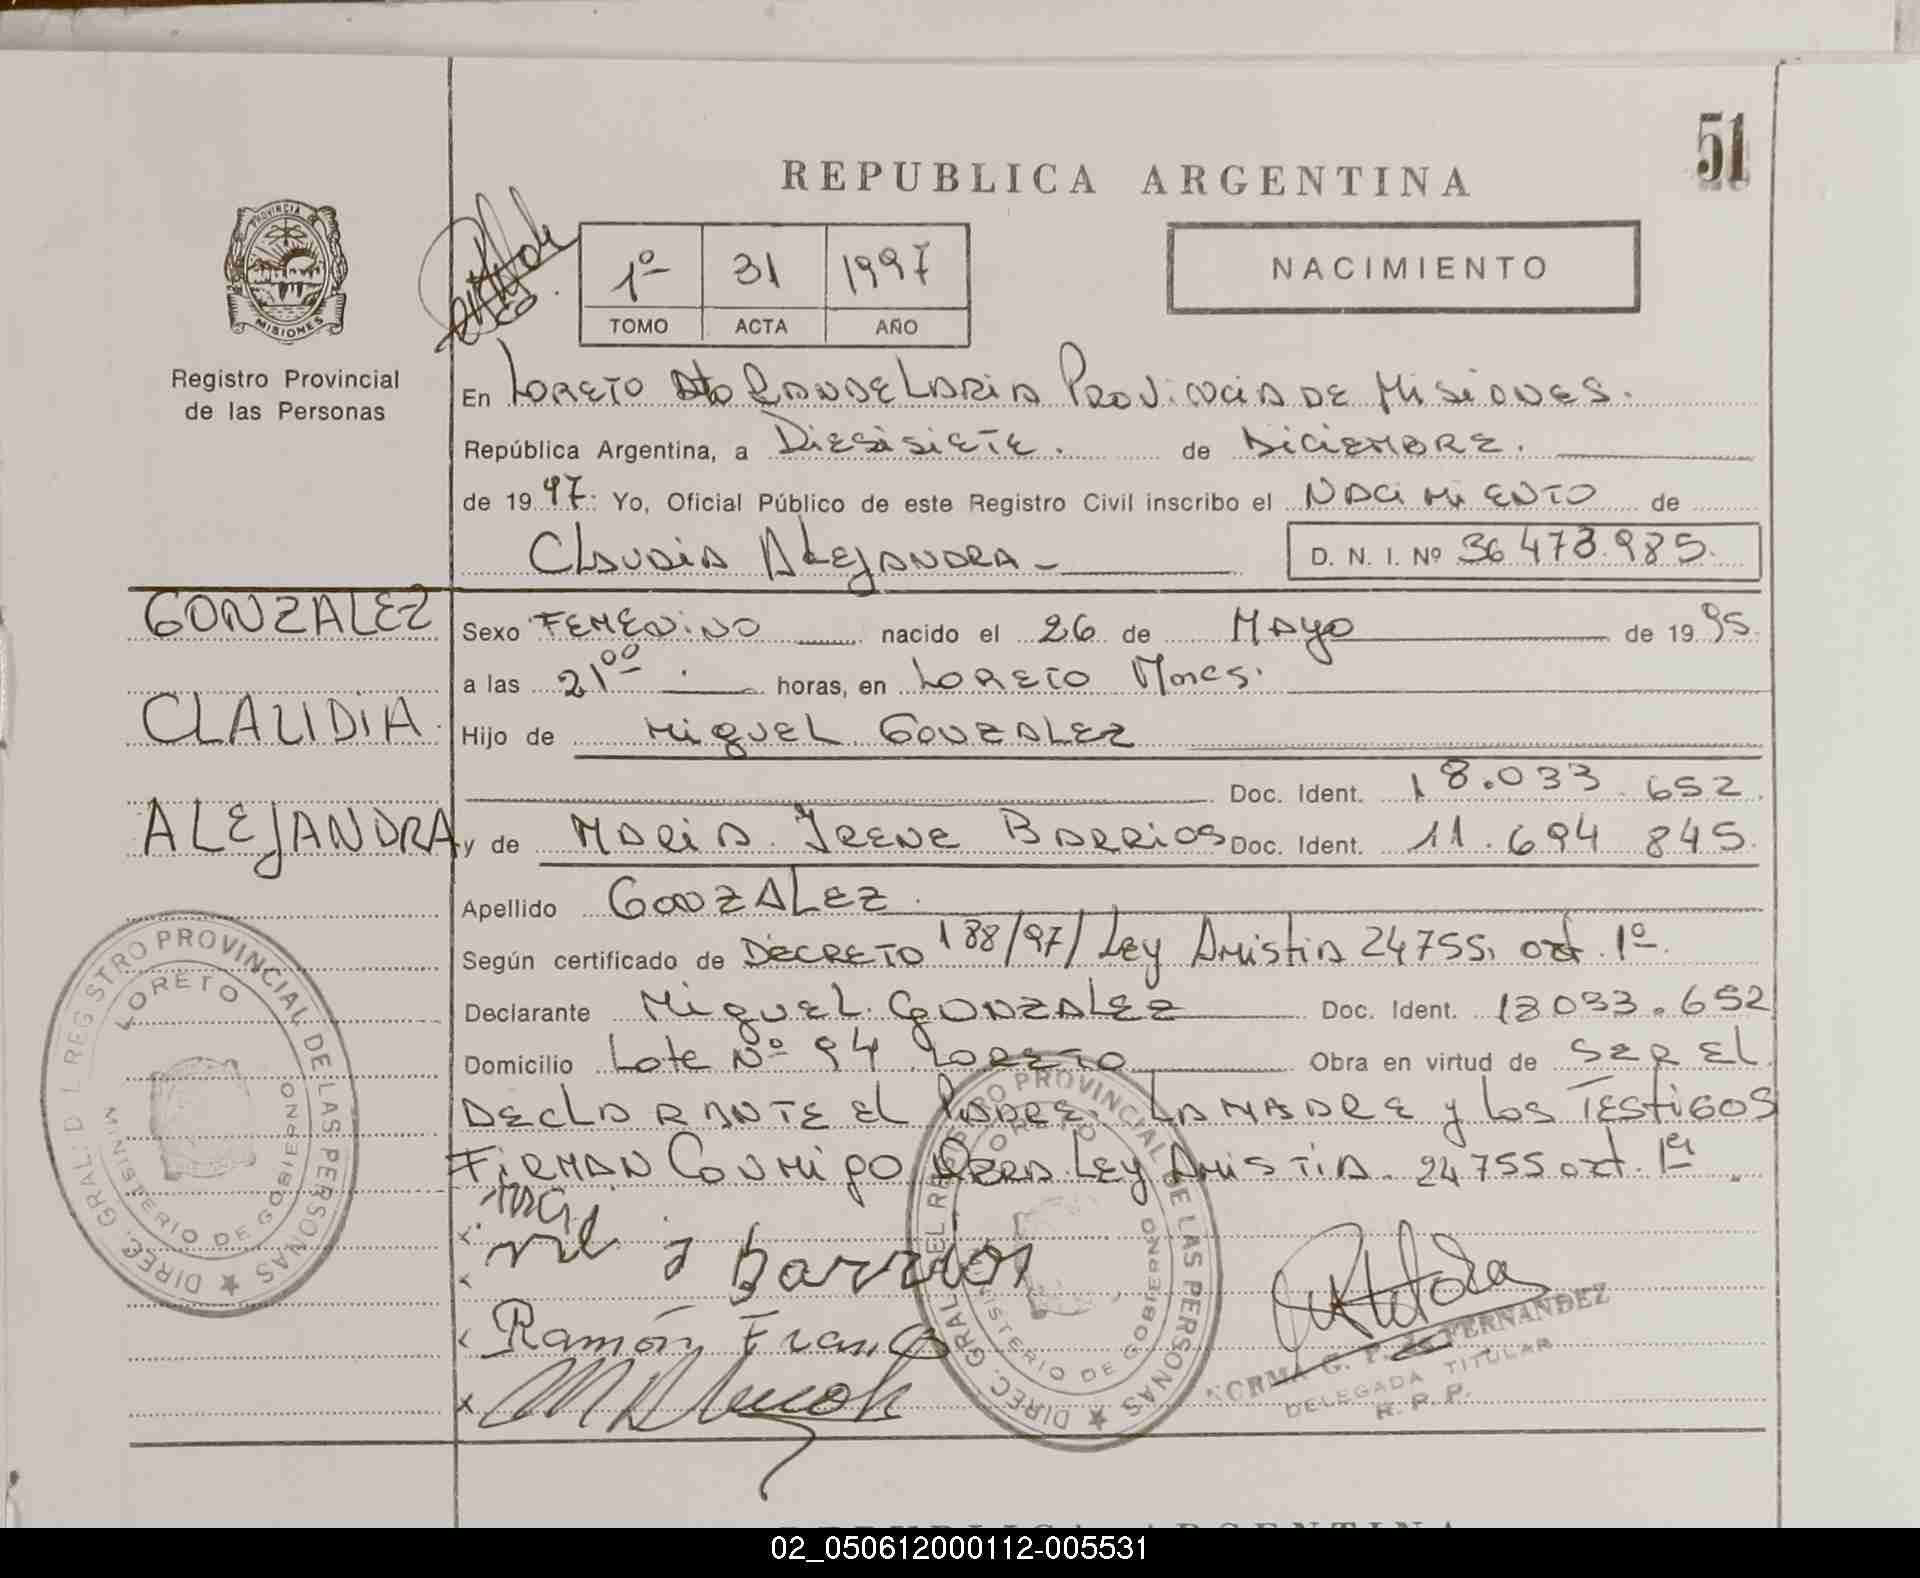 51
REPUBLICA ARGENTINA
PROVINCIA DE MISIONES
1º 31 1997
TOMO ACTA AÑO
NACIMIENTO
Registro Provincial
de las Personas
En LORETO Dto CANDELARIA PROVINCIA DE MISIONES.
República Argentina, a DIESISIETE. de DICIEMBRE.
de 1997: Yo, Oficial Público de este Registro Civil inscribo el NACIMIENTO de
CLAUDIA ALEJANDRA - D. N. I. Nº 36 473.985.
GONZALEZ
CLAUDIA.
ALEJANDRA
Sexo FEMENINO nacido el 26 de MAYO de 1995.
a las 21ºº horas, en LORETO Mnes.
Hijo de MIGUEL GONZALEZ
Doc. Ident. 18.033.652
y de MARIA IRENE BARRIOS Doc. Ident. 11.694 845.
Apellido GONZALEZ.
Según certificado de DECRETO 188/97/ Ley Amistia 24755, art. 1º.
Declarante MIGUEL GONZALEZ Doc. Ident. 18033.652
Domicilio Lote Nº 94 LORETO Obra en virtud de SER EL
DECLARANTE EL PADRE. LA MADRE y los TESTIGOS
FIRMAN CONMIGO Ley AMISTIA. 24755 art. 1º
barrios
Ramón Franco
NORMA G. P. de FERNANDEZ
DELEGADA TITULAR
R. P. P.
DIREC. GRAL. DEL REGISTRO PROVINCIAL DE LAS PERSONAS
LORETO
MINISTERIO DE GOBIERNO
DIREC. GRAL. DEL REGISTRO PROVINCIAL DE LAS PERSONAS
LORETO
MINISTERIO DE GOBIERNO
REPUBLICA ARGENTINA
02_050612000112-005531